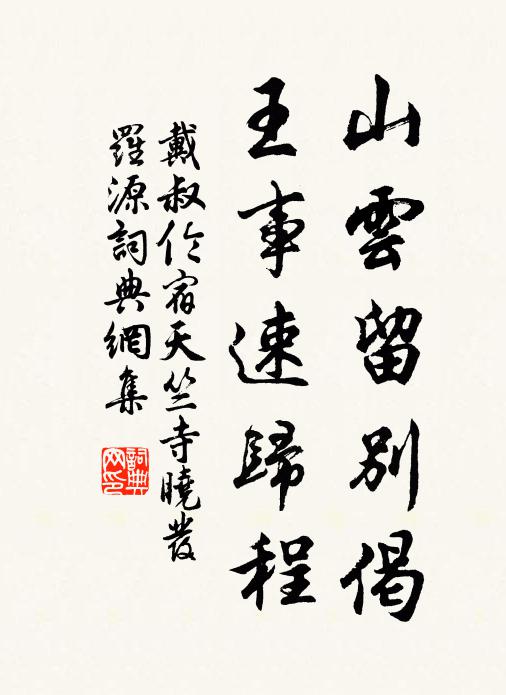 山雲留別偈
王事速歸程
戴叔伦宿天竺寺曉發
羅源詞典網集
詞典网印